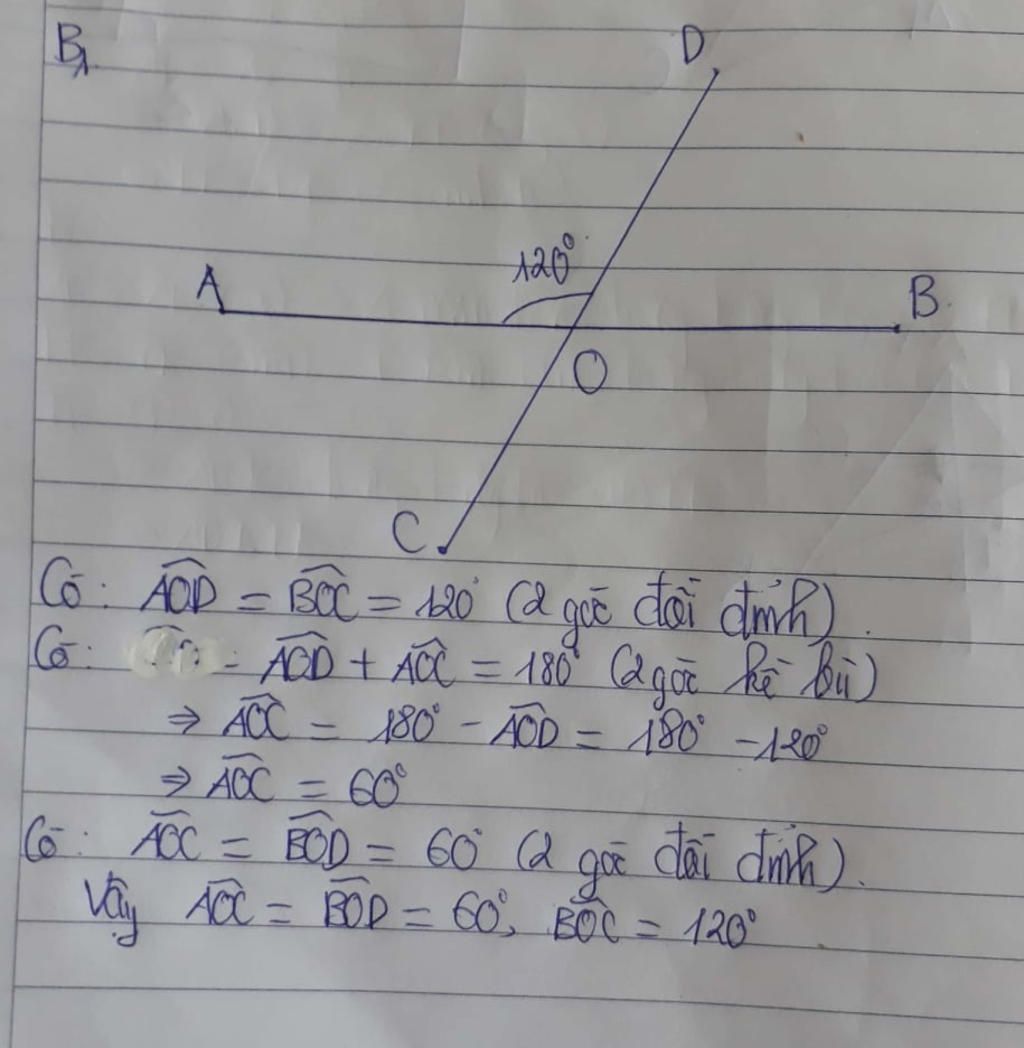 B1.
D
120°
A
B.
O
C
Có: AOD = BOC = 120° (2 góc đối đỉnh).
Có: - AOD + AOC = 180° (2 góc kề bù)
⇒ AOC = 180° - AOD = 180° - 120°
⇒ AOC = 60°
Có: AOC = BOD = 60° (2 góc đối đỉnh).
Vậy AOC = BOD = 60°, BOC = 120°